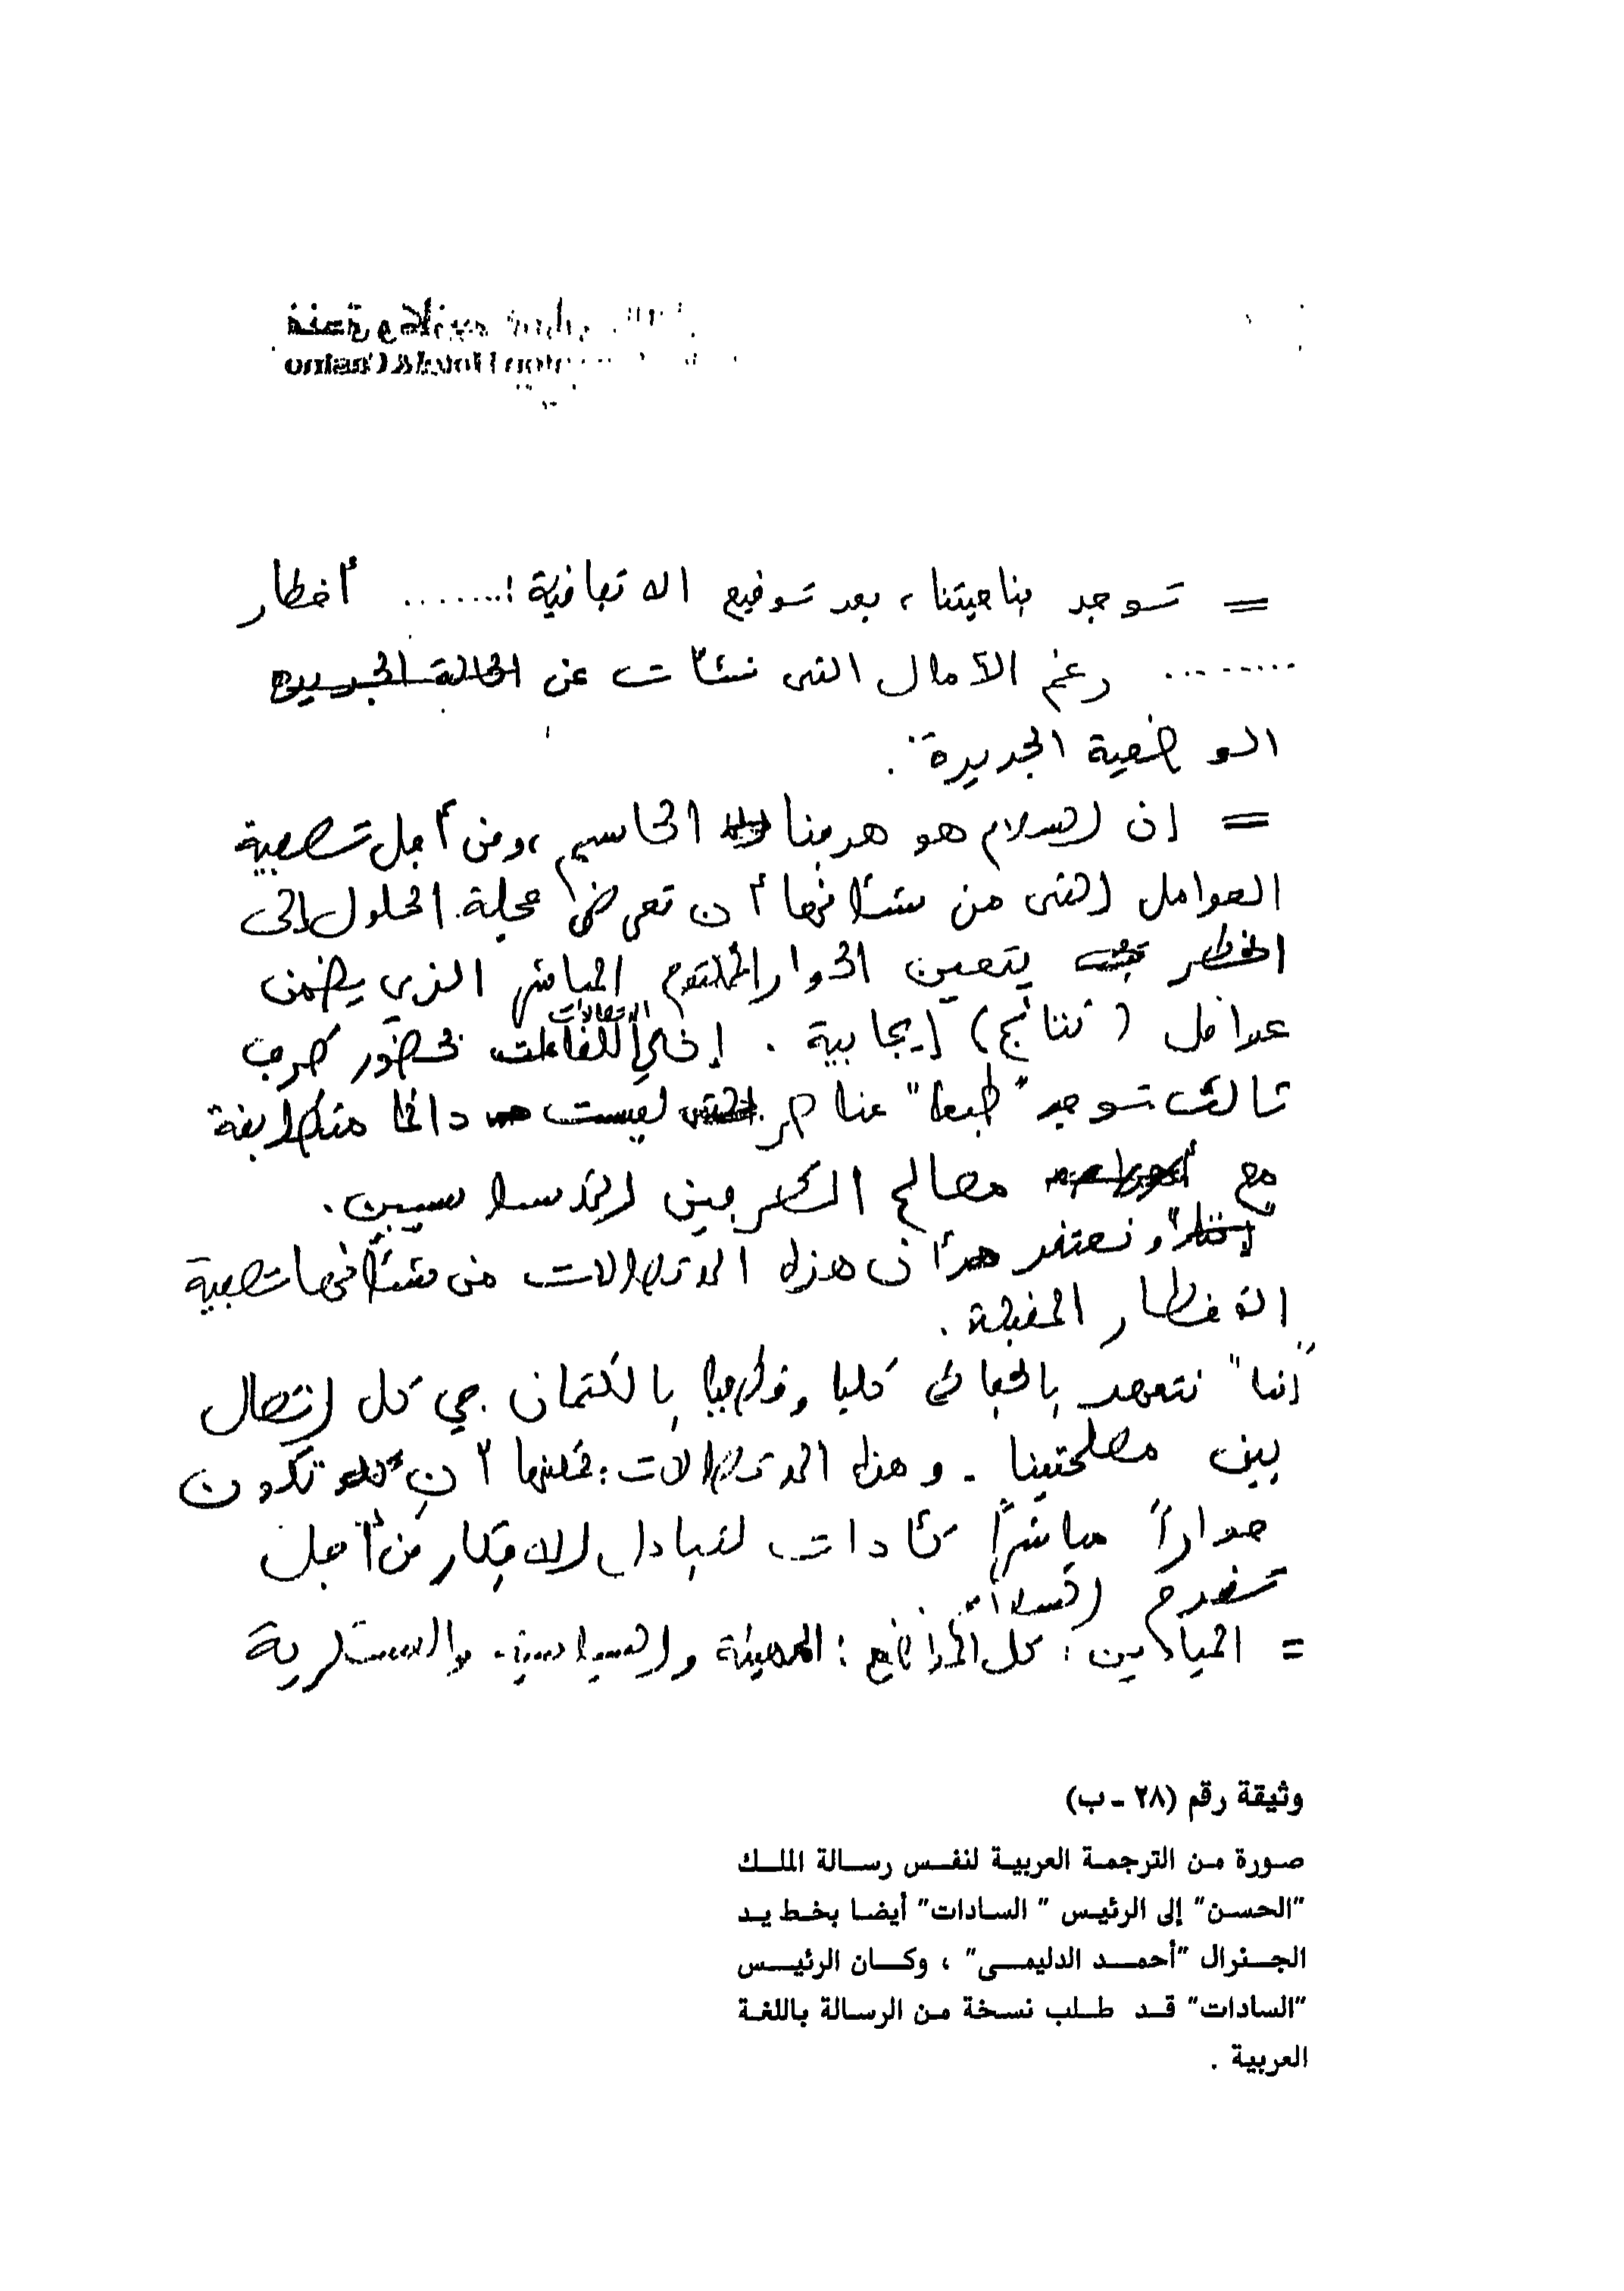 = توجد بناحيتنا، بعد توقيع الاتفاقية ؛....... أخطار
......... رغم الآمال التى نشأت عن الحالة الجديدة
الوضعية الجديدة .
= ان السلام هو هدفنا الحاسم، ومن أجل تصفية
العوامل التى من شأنها أن تعرض عجلة الحلول إلى
الخطر يتعين الحوار الملتزم المباشر الذي يضمن
عوامل (نتائج) إيجابية . الاتصالات بحضور طرف
ثالث توجد "طبعا" عناصر ليست دائما متطابقة
مع مصالح الطرفين الأساسيين .
ونعتقد أن هذه الاتصالات من شأنها تصفية
الأخطار المقبلة .
"إننا" نتعهد بالحفاظ كليا وقطعيا بالكتمان في كل إتصال
بين مصلحتينا - وهذه الاتصالات : أن تكون
حوارا مباشرا كأداة لتبادل الافكار من أجل
تقدم السلام
= الميادين : كل المواضيع : والسياسية والعسكرية
وثيقة رقم (٢٨ - ب)
صورة من الترجمة العربية لنفس رسالة الملك
"الحسن" إلى الرئيس " السادات" أيضا بخط يد
الجنرال "أحمد الدليمى" ، وكان الرئيس
"السادات" قد طلب نسخة من الرسالة باللغة
العربية .